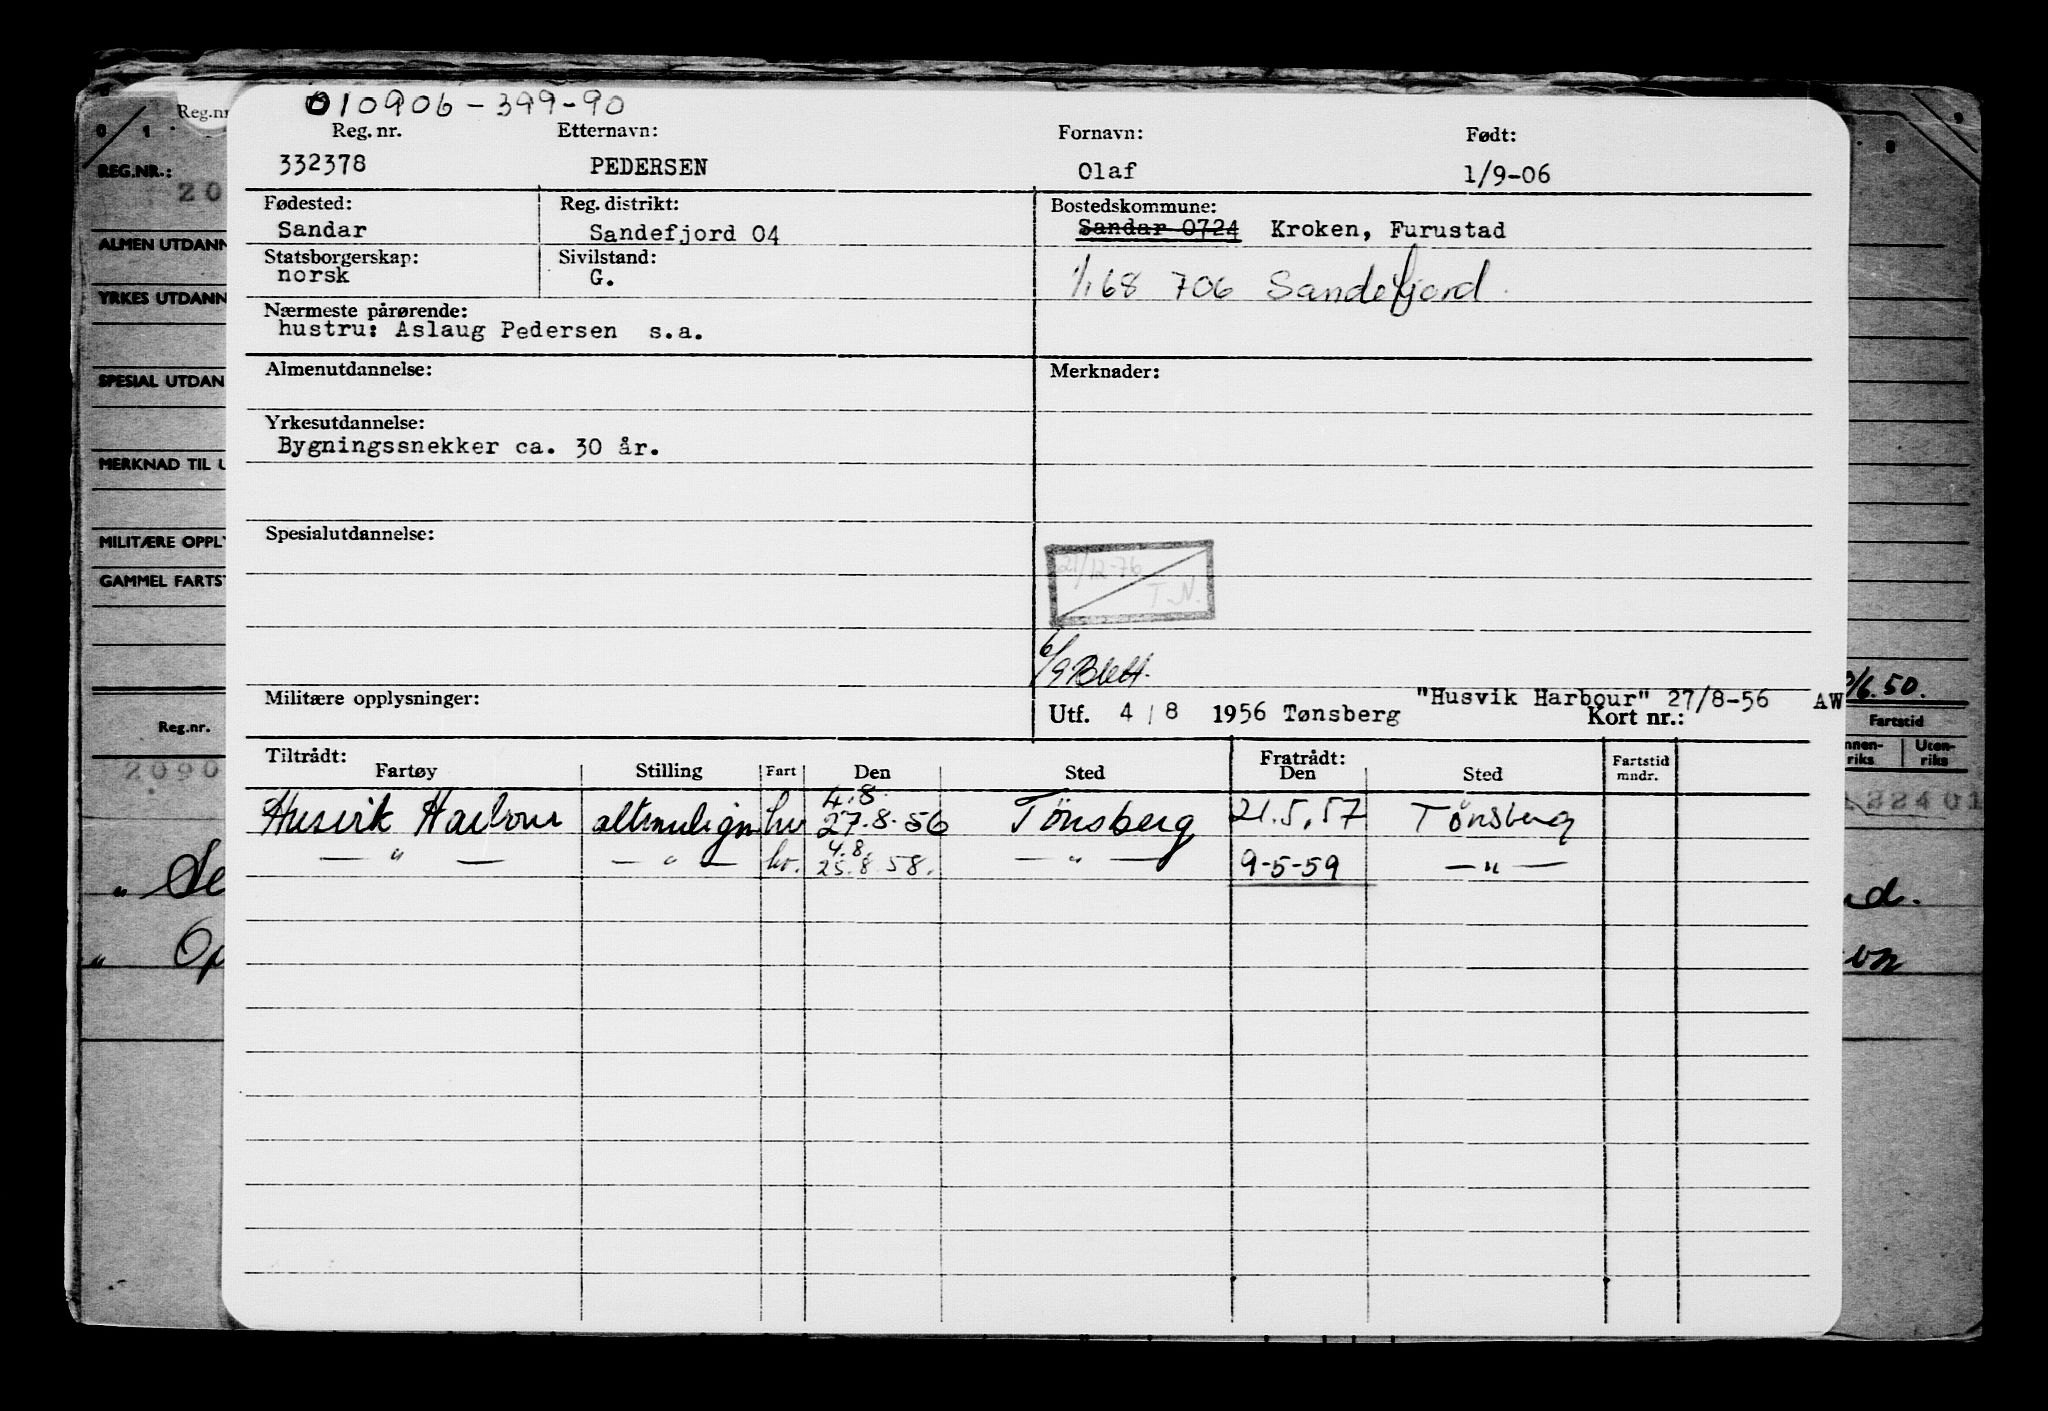 010906-399-90
Reg. nr. Etternavn: Fornavn: Født:
332378 PEDERSEN Olaf 1/9-06
Fødested: Reg. distrikt: Bostedskommune:
Sandar Sandefjord 04 Sandar 0724 Kroken, Furustad
Statsborgerskap: Sivilstand:
norsk G. 1/1 68 706 Sandefjord.
Nærmeste pårørende:
hustru: Aslaug Pedersen s.a.
Almenutdannelse: Merknader:
Yrkesutdannelse:
Bygningssnekker ca. 30 år.
Spesialutdannelse:
21/12-76
T.N.
6/9 Blett.
Militære opplysninger:
"Husvik Harbour" 27/8-56 AW
Utf. 4/8 1956 Tønsberg Kort nr.:
Tiltrådt: Fratrådt:
Fartøy Stilling Fart Den Sted Den Sted Fartstid mndr.
4.8.
Husvik Harbour altmuligm hv 27.8.56 Tönsberg 21.5.57 Tönsberg
4.8.
— " — — " — hv. 25.8.58. — " — 9-5-59 — " —
Reg.nr
0 1
REG.NR.:
20
ALMEN UTDANN
YRKES UTDANN
SPESIAL UTDAN
MERKNAD TIL U
MILITÆRE OPPLY
GAMMEL FARTST
Reg.nr.
2090
" Se
" Op
9
8
6.50.
Fartstid
nnen-riks Uten-riks
22401
nd.